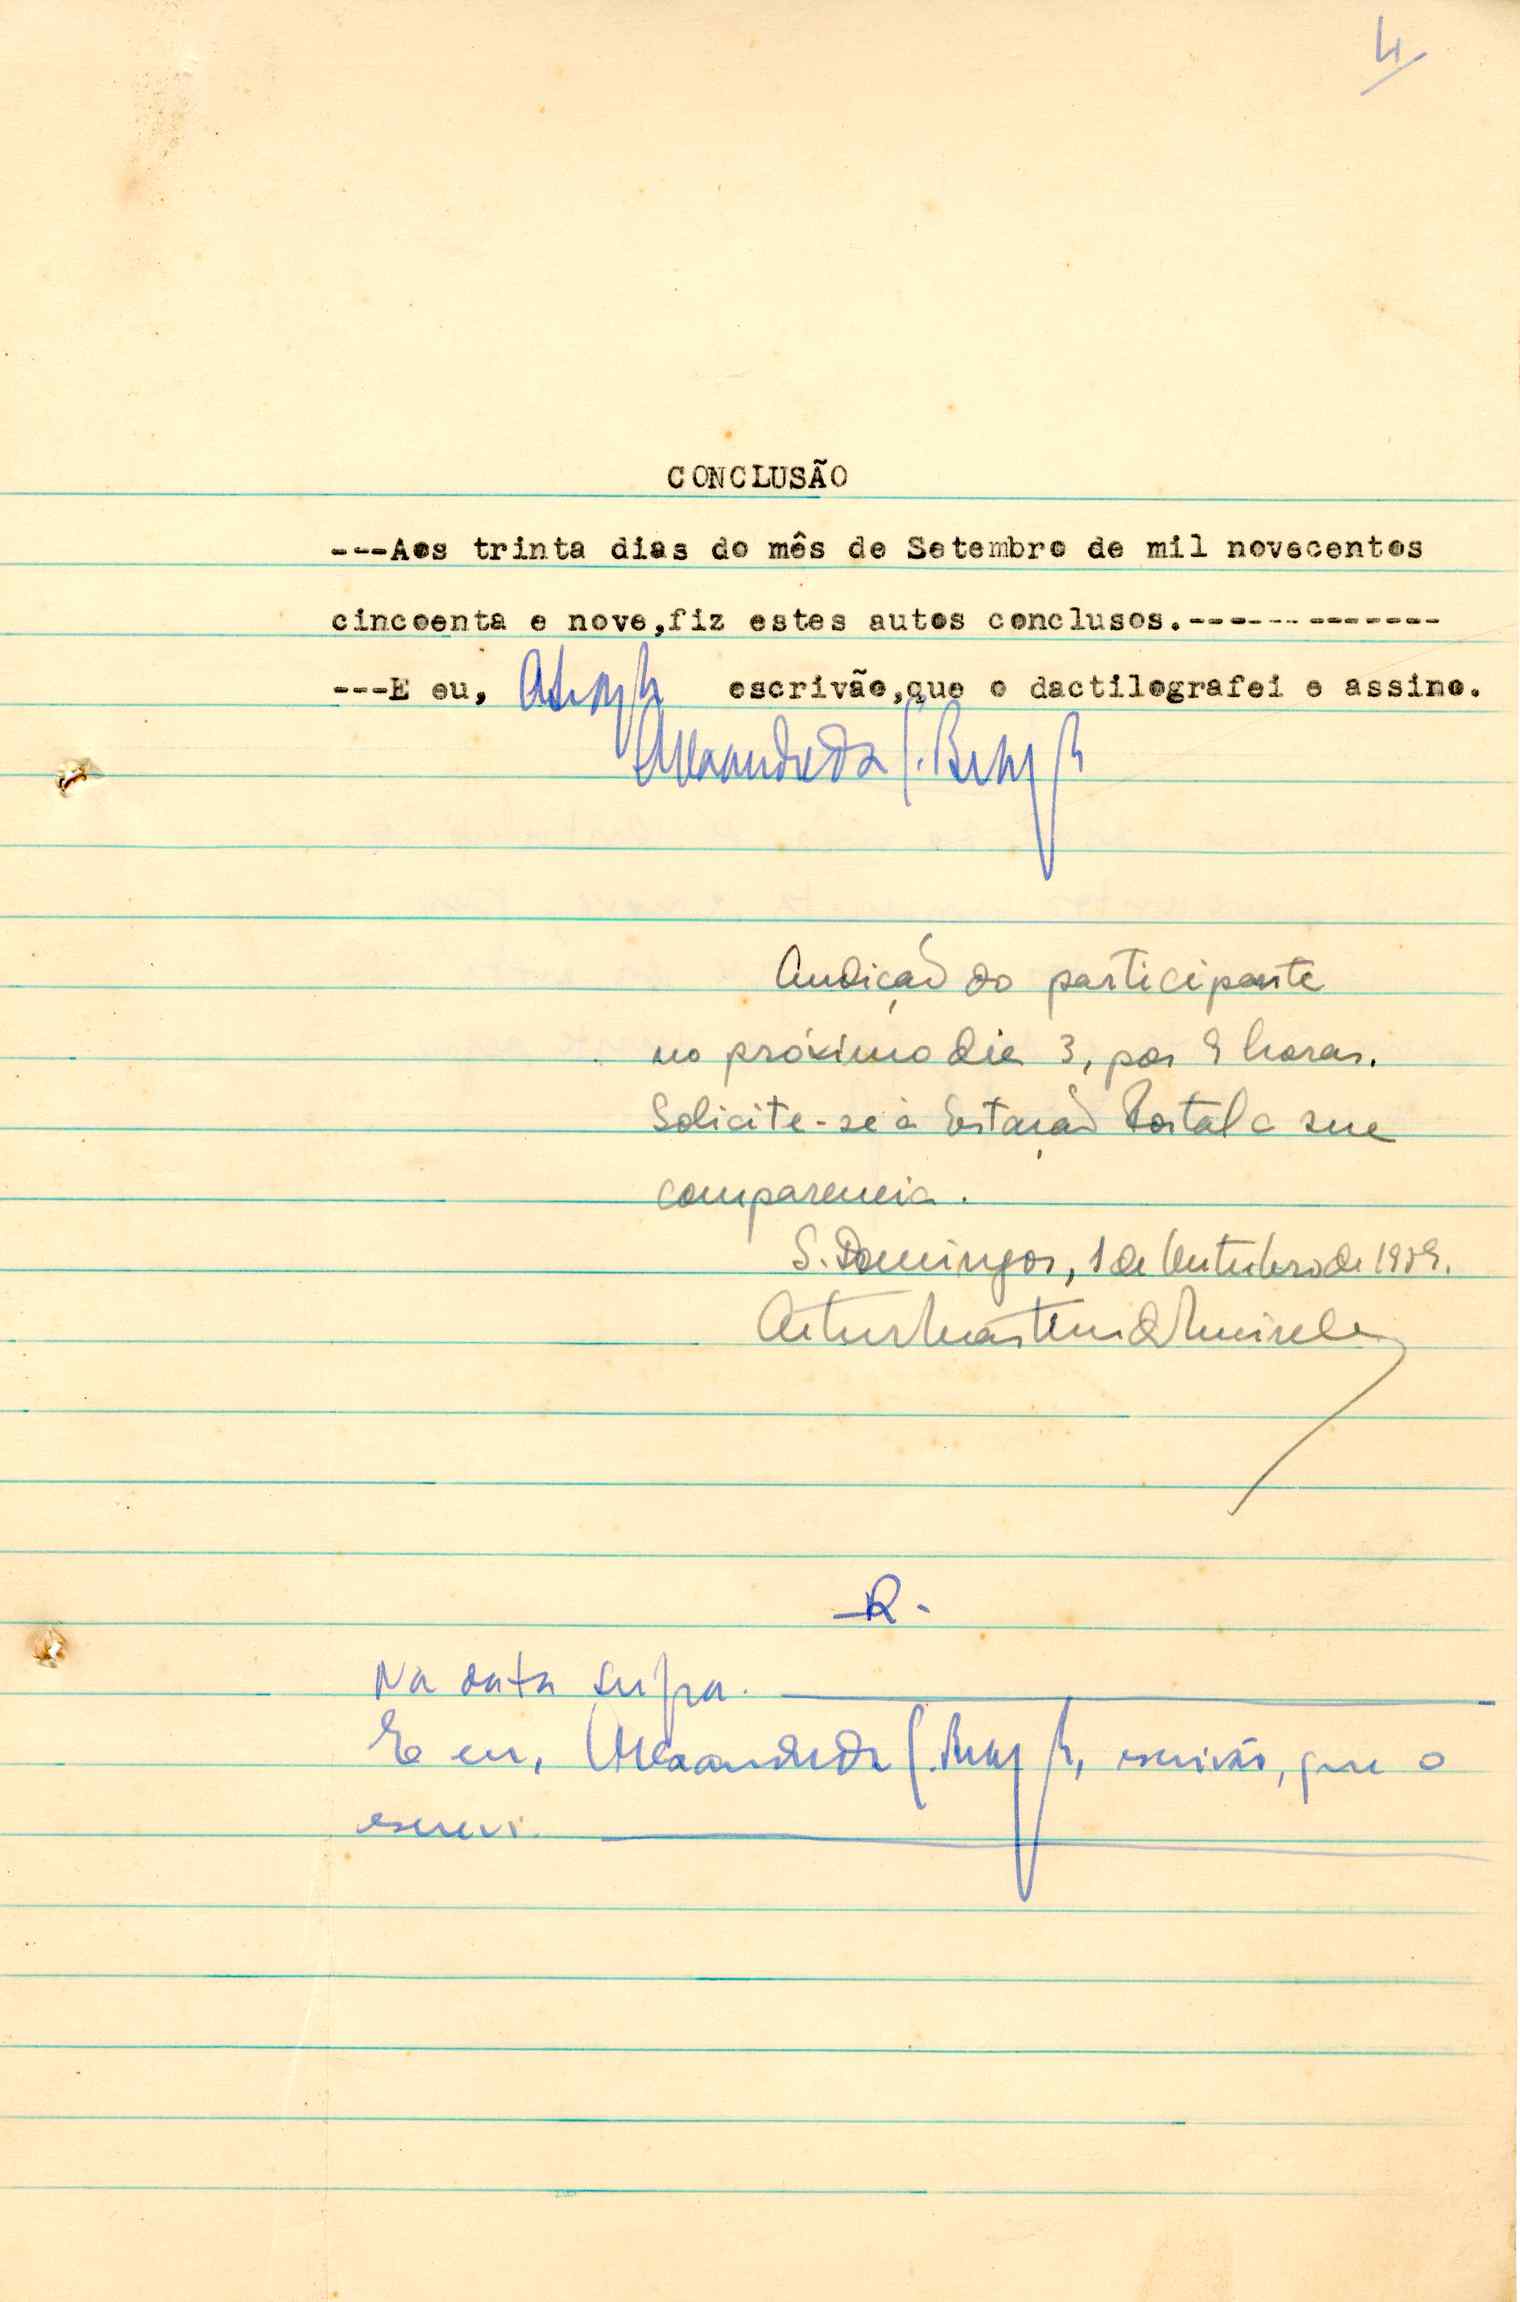 4
CONCLUSÃO
---Aos trinta dias do mês de Setembro de mil novecentos
cincoenta e nove,fiz estes autos conclusos.-------------
---E eu, escrivão,que o dactilografei e assino.
Audição do participante
no próximo dia 3, por 9 horas.
Solicite-se à Estação Postal a sua
comparencia.
S. Domingos, 1 de Outubro de 1959.
Artur Martins de Meireles
-R-
Na data supra.
E eu, escrivão, que o
escrevi.